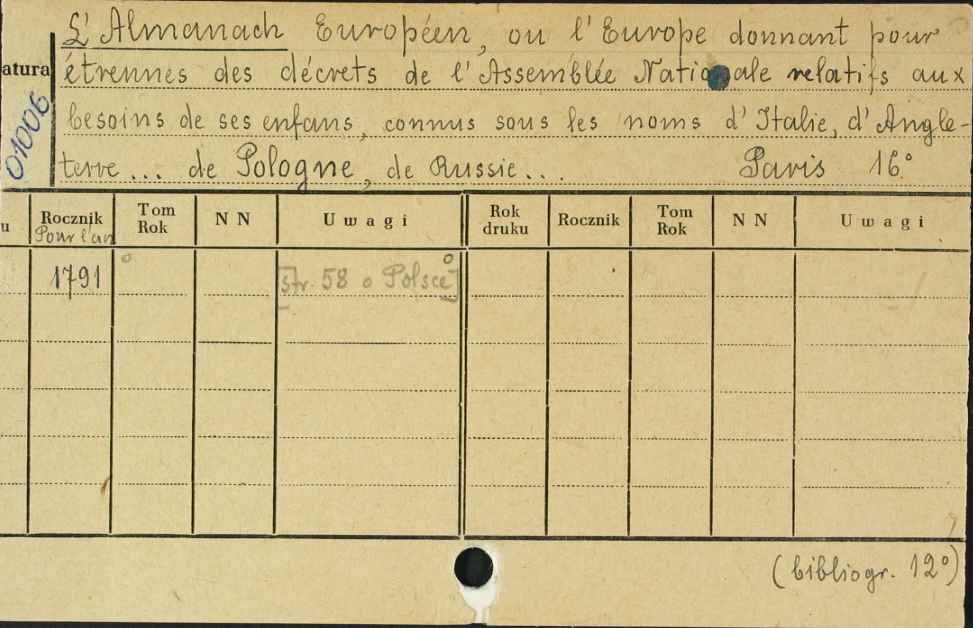 L'Almanach Européen, ou l'Europe donnant pour
atura étrennes des décrets de l'Assemblée Nationale relatifs aux
01006 besoins de ses enfans, connus sous les noms d'Italie, d'Angle-
terre... de Pologne, de Russie... Paris 16°
u Rocznik Tom Rok N N Uwagi Rok druku Rocznik Tom Rok N N Uwagi
Pour l'an
1791 ° [str. 58 o Polsce]°
(bibliogr. 12°)